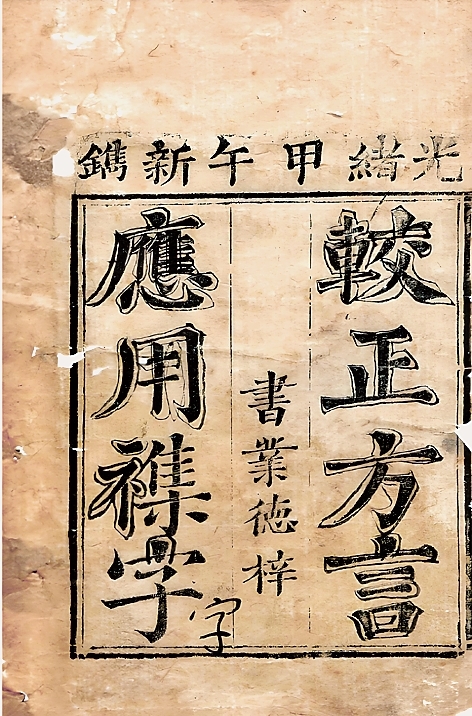 光緒甲午新鐫
較正方言
書業德梓
應用襍字
字